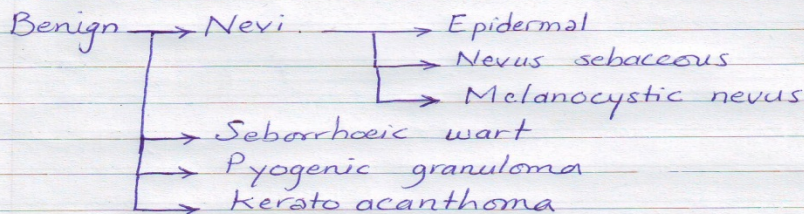 Benign → Nevi. → Epidermal
→ Nevus sebaceous
→ Melanocystic nevus
→ Seborrhoeic wart
→ Pyogenic granuloma
→ Kerato acanthoma